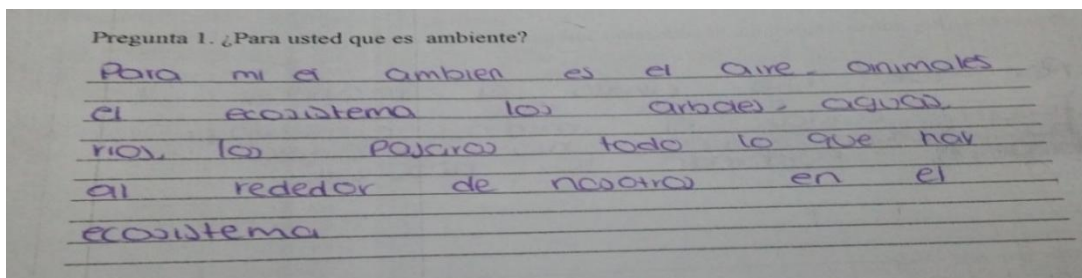 Pregunta 1. ¿Para usted que es ambiente?
Para mi el ambien es el aire. animales
el ecosistema los arboles. aguas
rios, los pajaros todo lo que hay
al rededor de nosotros en el
ecosistema